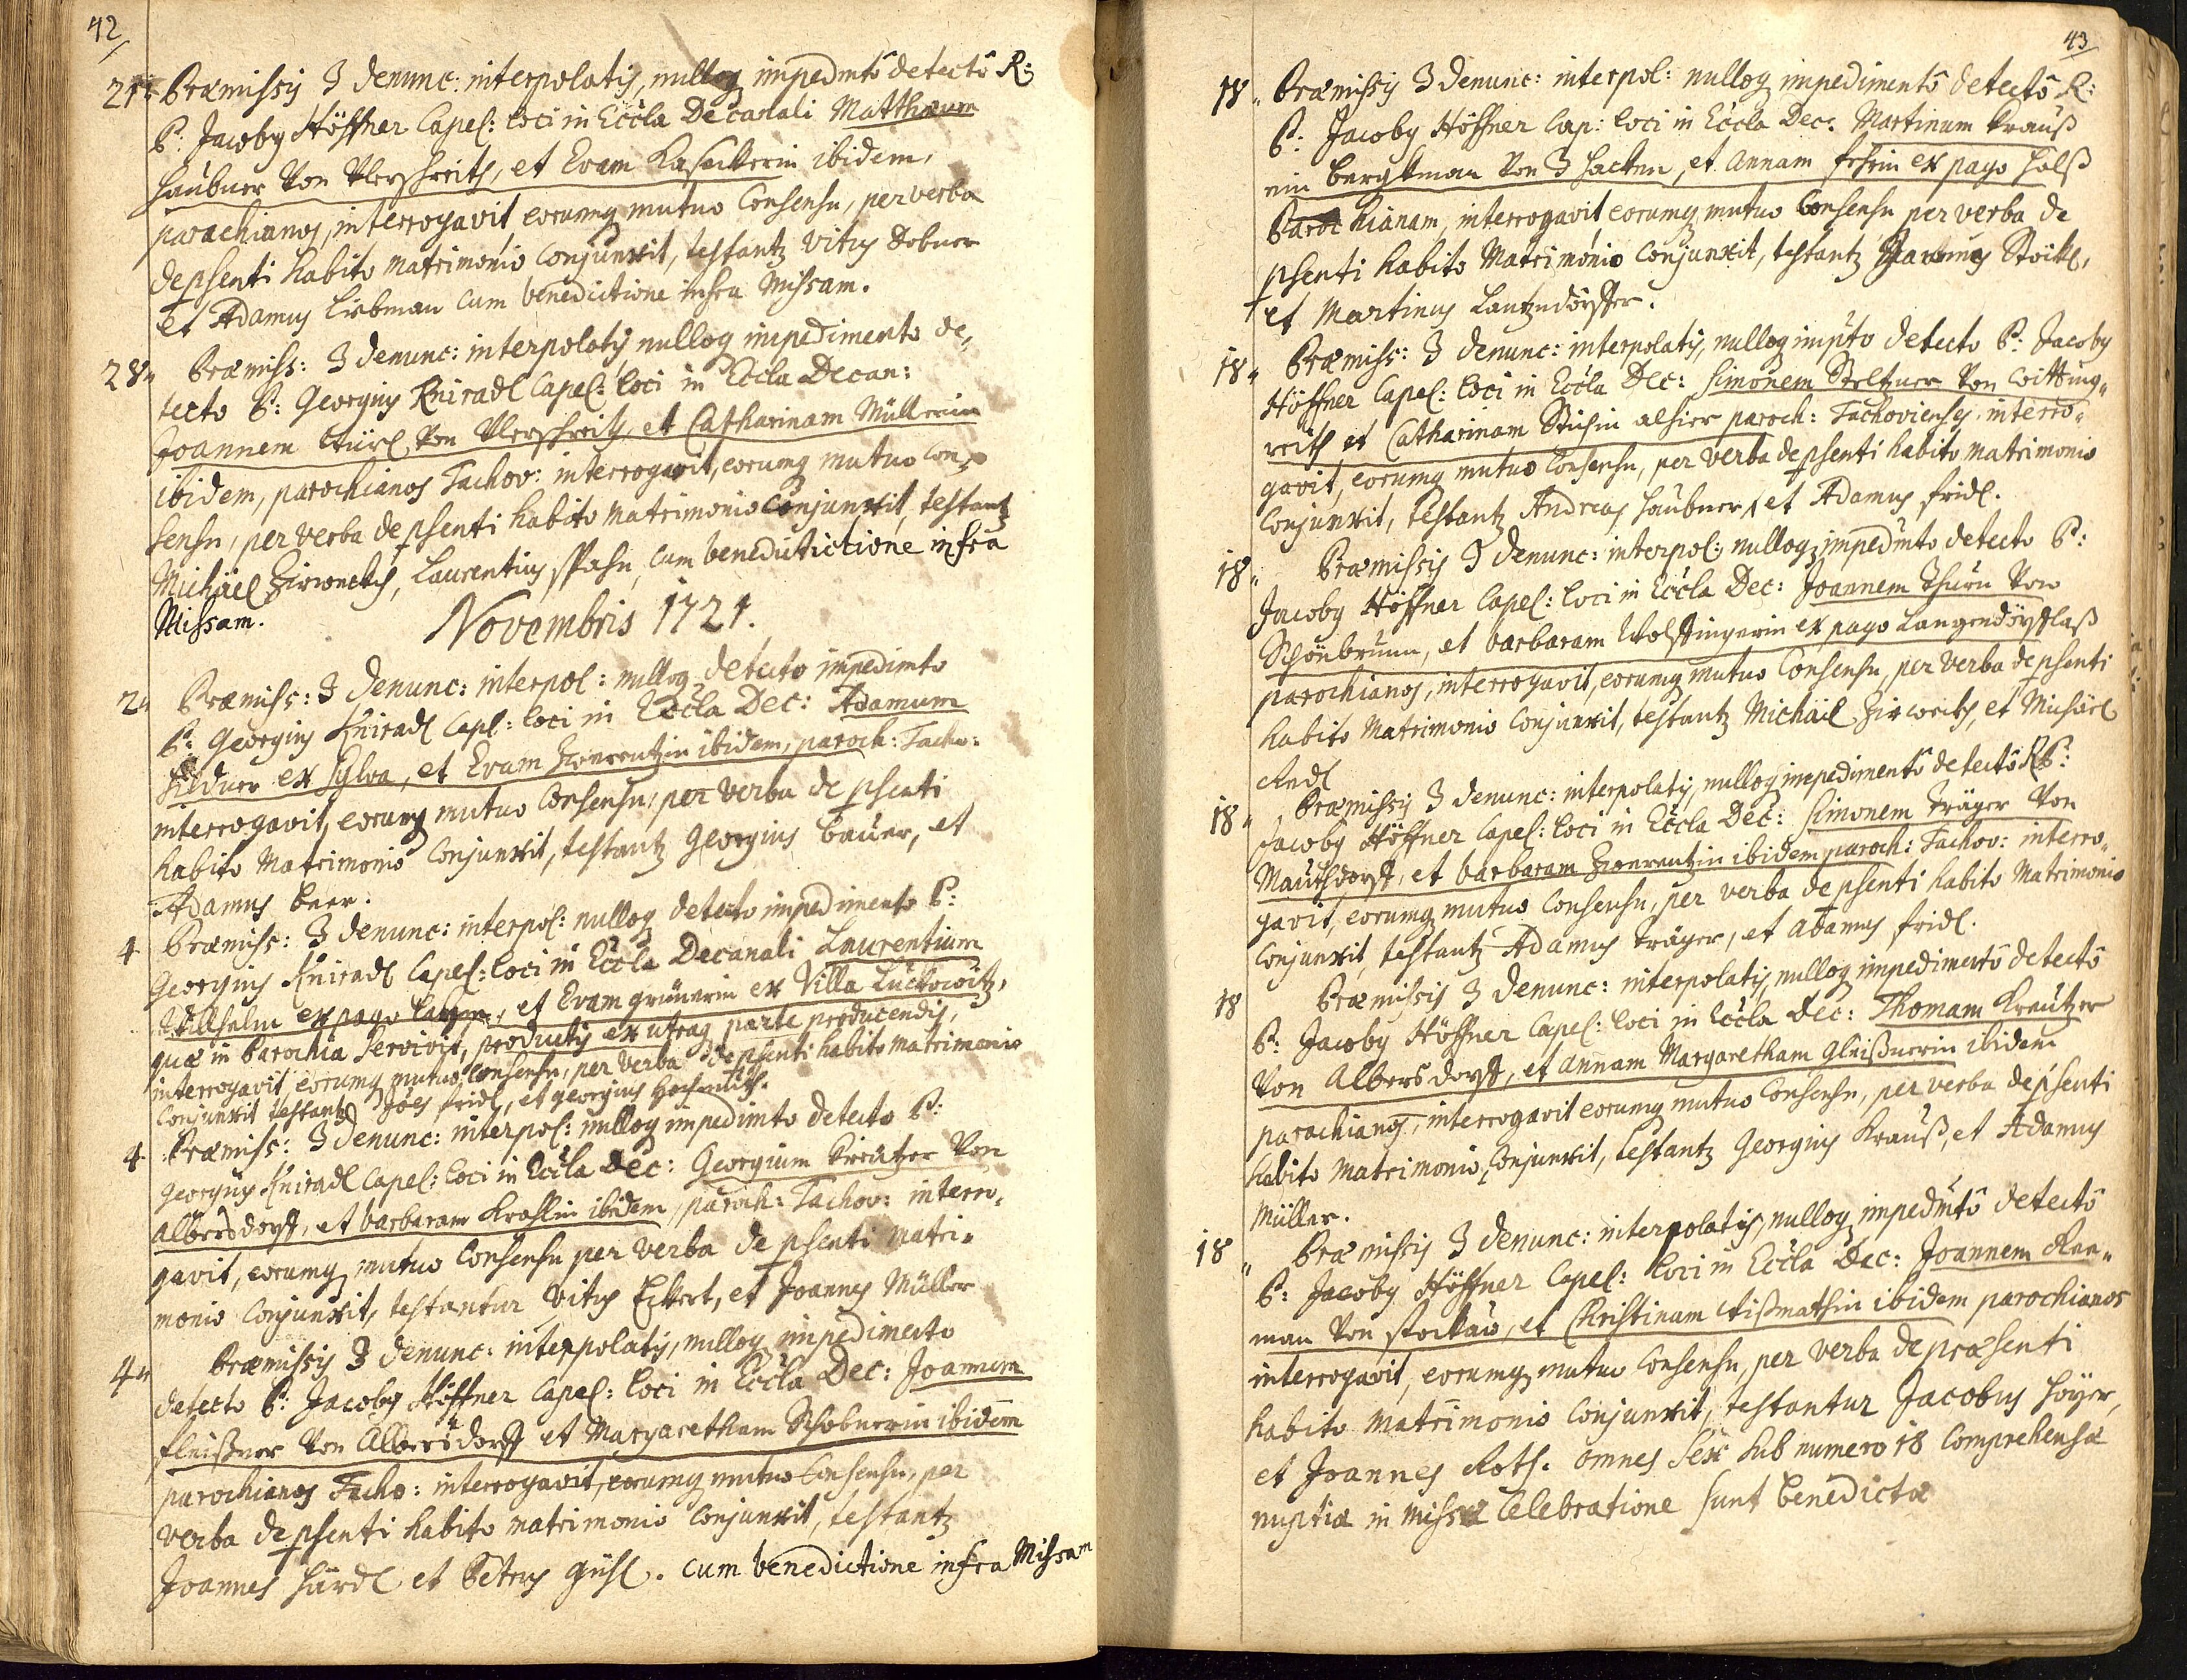 42
21. Præmissis 3 denunc: interpolatis, nulloq impedmto detecto R:
P: Jacobg Höffner Capel: loci in Eccla Decanali Matthæum
Haubner Von Ulerschreith, et Evam Kasackerin ibidem,
parochianos, interrogavit, eorumq mutuo Consensu, per verba
de psenti habito matrimonio Conjunxit, testantz Vitus Dobner
et Adamus Liebman cum benedictione infra Missam.
28" Præmiss: 3 denunc: interpolatis nulloq impedimento de,
tecto P: Georgius Kniradl Capel: loci in Eccla Decan:
Joannem Würl Von Ulerschreith, et Catharinam Müllerin
ibidem, parochianos Tachov: interrogavit, eorumq mutuo con,
sensu, per verba de psenti habito matrimonio Conjunxit, testantz
Michäel Zirweckh, Laurentius Spahn, cum benedictictione infra
Missam.
Novembris 1721.
2" Præmiss: 3 denunc: interpol: nulloq detecto impedimto
P: Georgius Kniradl Capl: loci in Eccla Dec: Adamum
Hildner ex Sylva, et Evam Zwerentzin ibidem, paroch: Tacho:
interrogavit, eorumq mutuo Consensu, per verba de psenti
habito Matrimonio Conjunxit, testantz Georgius Bauer, et
Adamus Beer.
4 Præmiss: 3 denunc: interpol: nulloq detecto impedimento P:
Georgius Kniradl Capel: loci in Eccla Decanali Laurentium
Willhelm ex pago, et Evam grünerin ex Villa Luckowitz,
quæ in Parochia servivit, productis ex utraq parte producendis,
interrogavit eorumq mutuo Consensu, per verba de psenti habito matrimonio
Conjunxit testantz Joes fridl, et georgius
4 Præmiss: 3 denunc: interpol: nulloq impedimto detecto P:
Georgius Kniradl Capel: loci in Eccla Dec: Georgium Kreutzer Von
Albersdorff, et barbaram Krahlin ibidem, paroch: Tachov: interro,
gavit, eorumq mutuo Consensu per verba de psenti matri,
monio Conjunxit, testantur Vitus Eckert, et Joannes Müller
4" Præmissis 3 denunc: interpolatis, nulloq impedimento
detecto P: Jacobg Höffner Capel: loci in Eccla Dec: Joannem
fleißner Von Albersdorff et Margaretham Schobnerin ibidem
parochianos Tacho: interrogavit, eorumq mutuo Consensu, per
verba de psenti habito matrimonio Conjunxit, testantz
Joannes Härdl et Petrus gühl. cum benedictione infra Missam
43
18" Præmissis 3 denunc: interpol: nulloq impedimento detecto R:
P: Jacobg Höffner Cap: loci in Eccla Dec: Martinum Krauß
ein Bergkman Von 3 Hacken, et Annam fehrin ex pago Holß
Parochianam, interrogavit, eorumq mutuo Consensu per verba de
psenti habito Matrimonio Conjunxit, testantz Stöckl,
et Martinus Lantzndörffer.
18" Præmiss: 3 denunc: interpolatis, nulloq impto detecto P: Jacobg
Höffner Capel: loci in Eccla Dec: Simonem Steltzner Von Witting"
reith et Catharinam Stichin alhier paroch: Tachovienses, interro"
gavit, eorumq mutuo Consensu, per verba de psenti habito matrimonio
Conjunxit, testantz Andreas Haubner, et Adamus fridl.
18" Præmissis 3 denunc: interpol: nulloq impedmto detecto P:
Jacobg Höffner Capel: loci in Eccla Dec: Joannem Thurn Von
Schönbrunn, et barbaram Wolffingerin ex pago Langendörfflaß
parochianos, interrogavit, eorumq mutuo Consensu, per verba de psenti
habito Matrimonio Conjunxit, testantz Michäel Zirweckh, et Michäel
Riedl
18" Præmissis 3 denunc: interpolatis, nulloq impedimento detecto RP:
Jacobg Höffner Capel: loci in Eccla Dec: Simonem Träger Von
Mauthdorff, et barbaram Zwerentzin ibidem paroch: Tachov: interro"
gavit, eorumq mutuo Consensu, per verba de psenti habito Matrimonio
Conjunxit, testantz Adamus Träger, et Adamus fridl.
18 Præmissis 3 denunc: interpolatis, nulloq impedimento detecto
P: Jacobg Höffner Capel: loci in Eccla Dec: Thomam Kräutzer
Von Albersdorff, et Annam Margaretham Gleißnerin ibidem
parochianos, interrogavit eorumq mutuo Consensu, per verba de psenti
habito matrimonio Conjunxit, testantz Georgius Krauß, et Adamus
Müller.
18" Præmissis 3 denunc: interpolatis, nulloq impedmto detecto
P: Jacobg Höffner Capel: loci in Eccla Dec: Joannem Ree"
man Von Stockau, et Christinam Wißmathin ibidem parochianos
interrogavit, eorumq mutuo Consensu, per verba de præsenti
habito matrimonio Conjunxit, testantur Jacobus Hoÿer,
et Joannes Roth. omnes sex sub numero 18 comprehensæ
nuptiæ in Missæ Celebratione sunt benedictæ